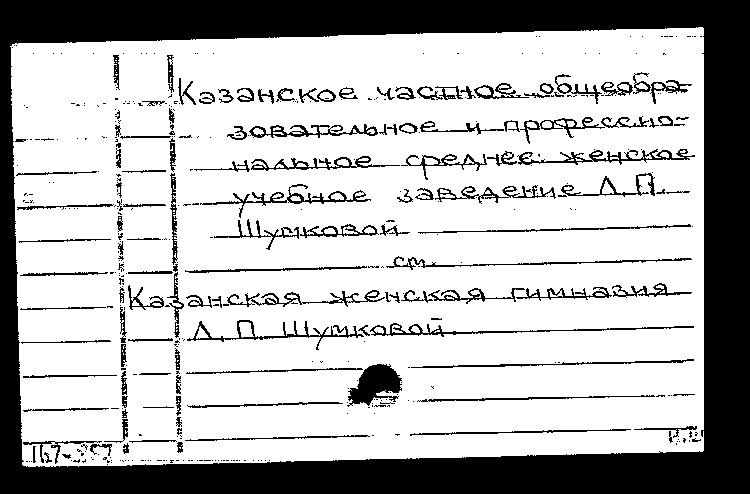 Казанское частное общеобра-
зовательное и профессио-
нальное среднее женское
учебное заведение Л. П.
Шумковой
см.
Казанская женская гимназия
Л. П. Шумковой.
И.Ш